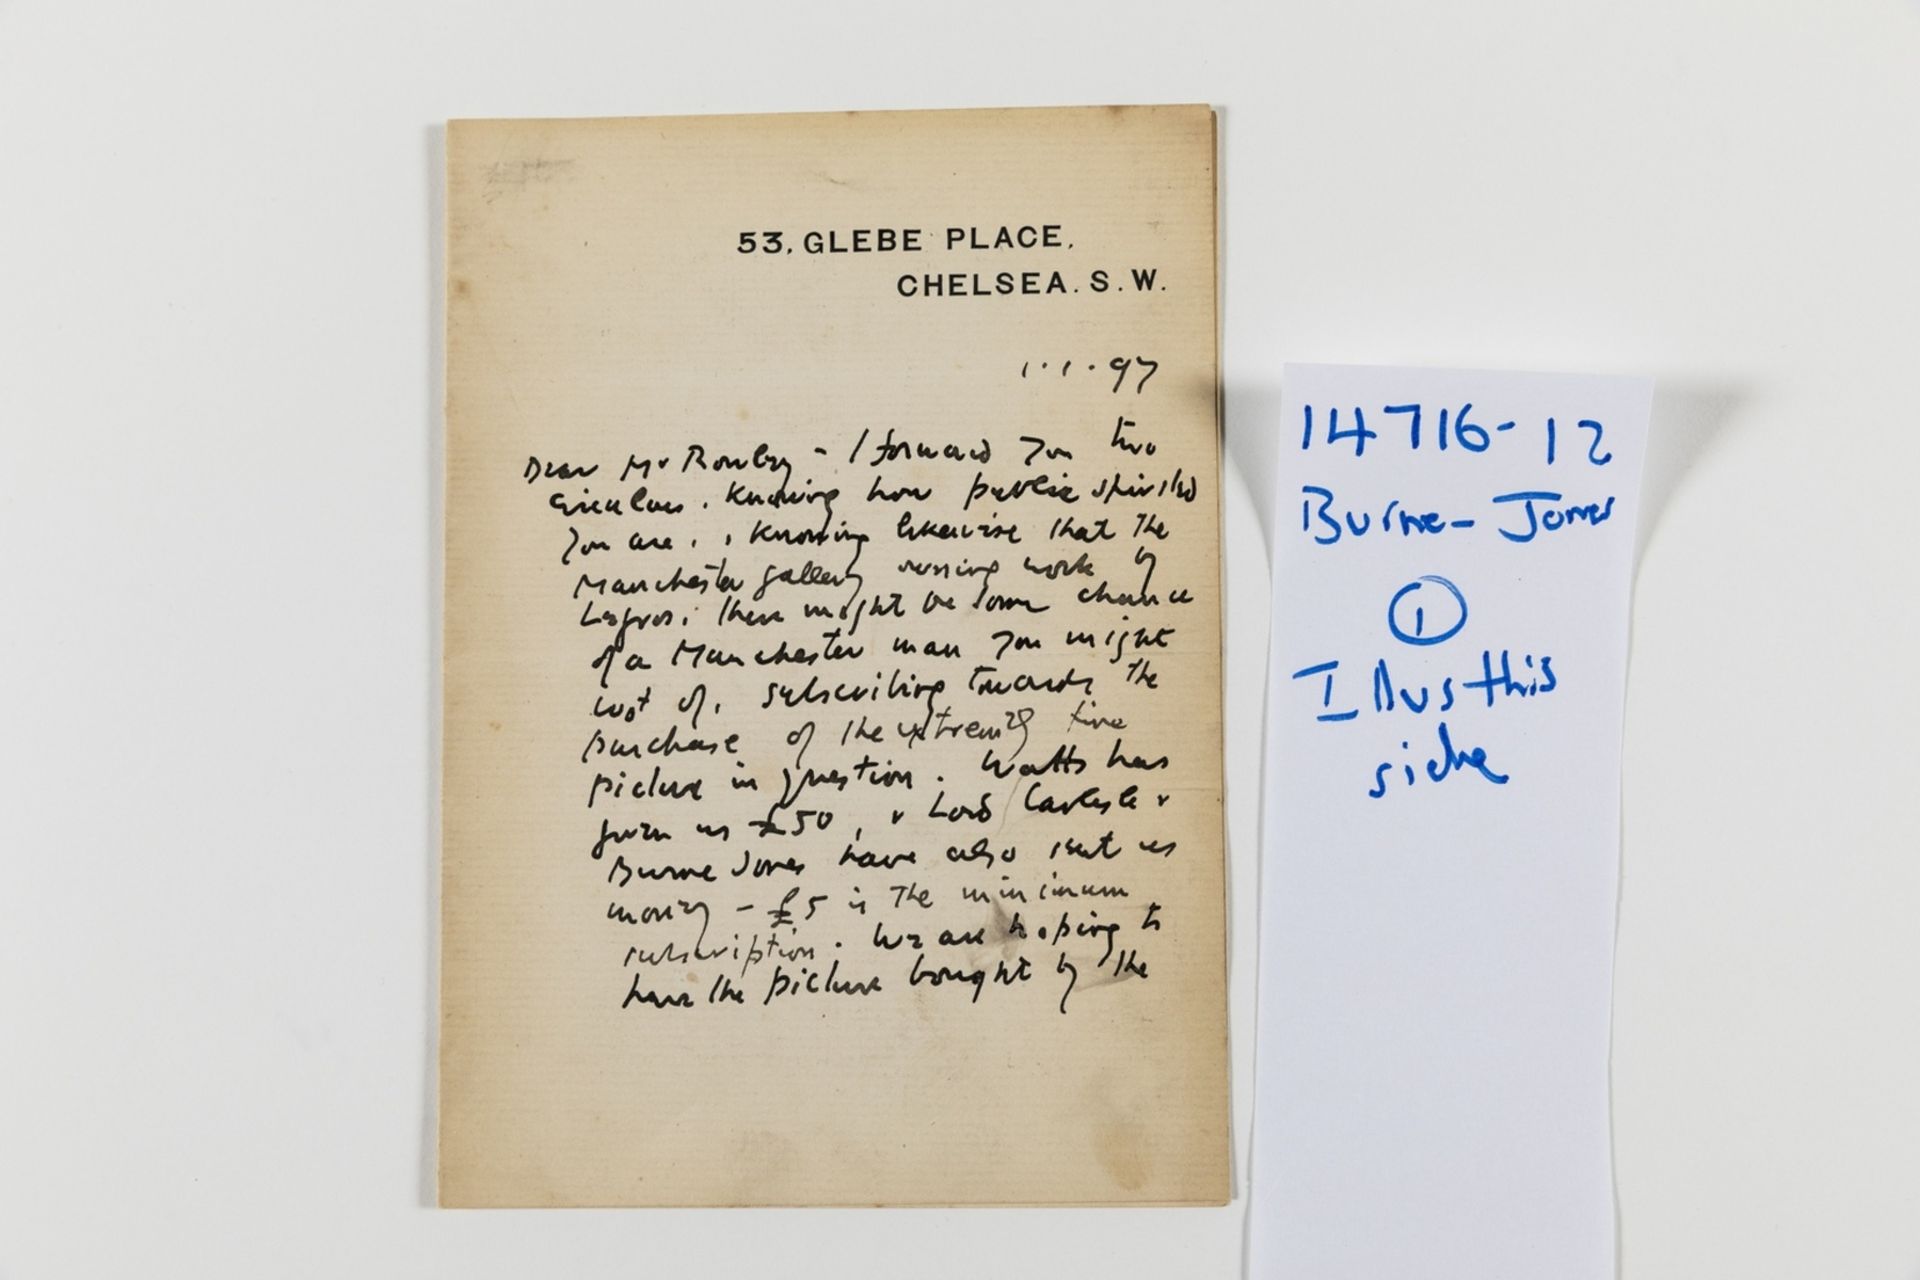 53, GLEBE PLACE,
CHELSEA. S. W.
1.1.97
Dear Mr Rowley - I forward you two
circulars. Knowing how public spirited
you are, & knowing likewise that the
Manchester gallery owning work by
Legros, there might be some chance
of a Manchester man you might
wot of, subscribing towards the
purchase of the extremely fine
picture in question. Watts has
given us £50, & Lord Carlisle &
Burne Jones have also sent us
money - £5 is the minimum
subscription. We are hoping to
have the picture bought by the
14716-12
Burne-Jones
1
Illus this
side